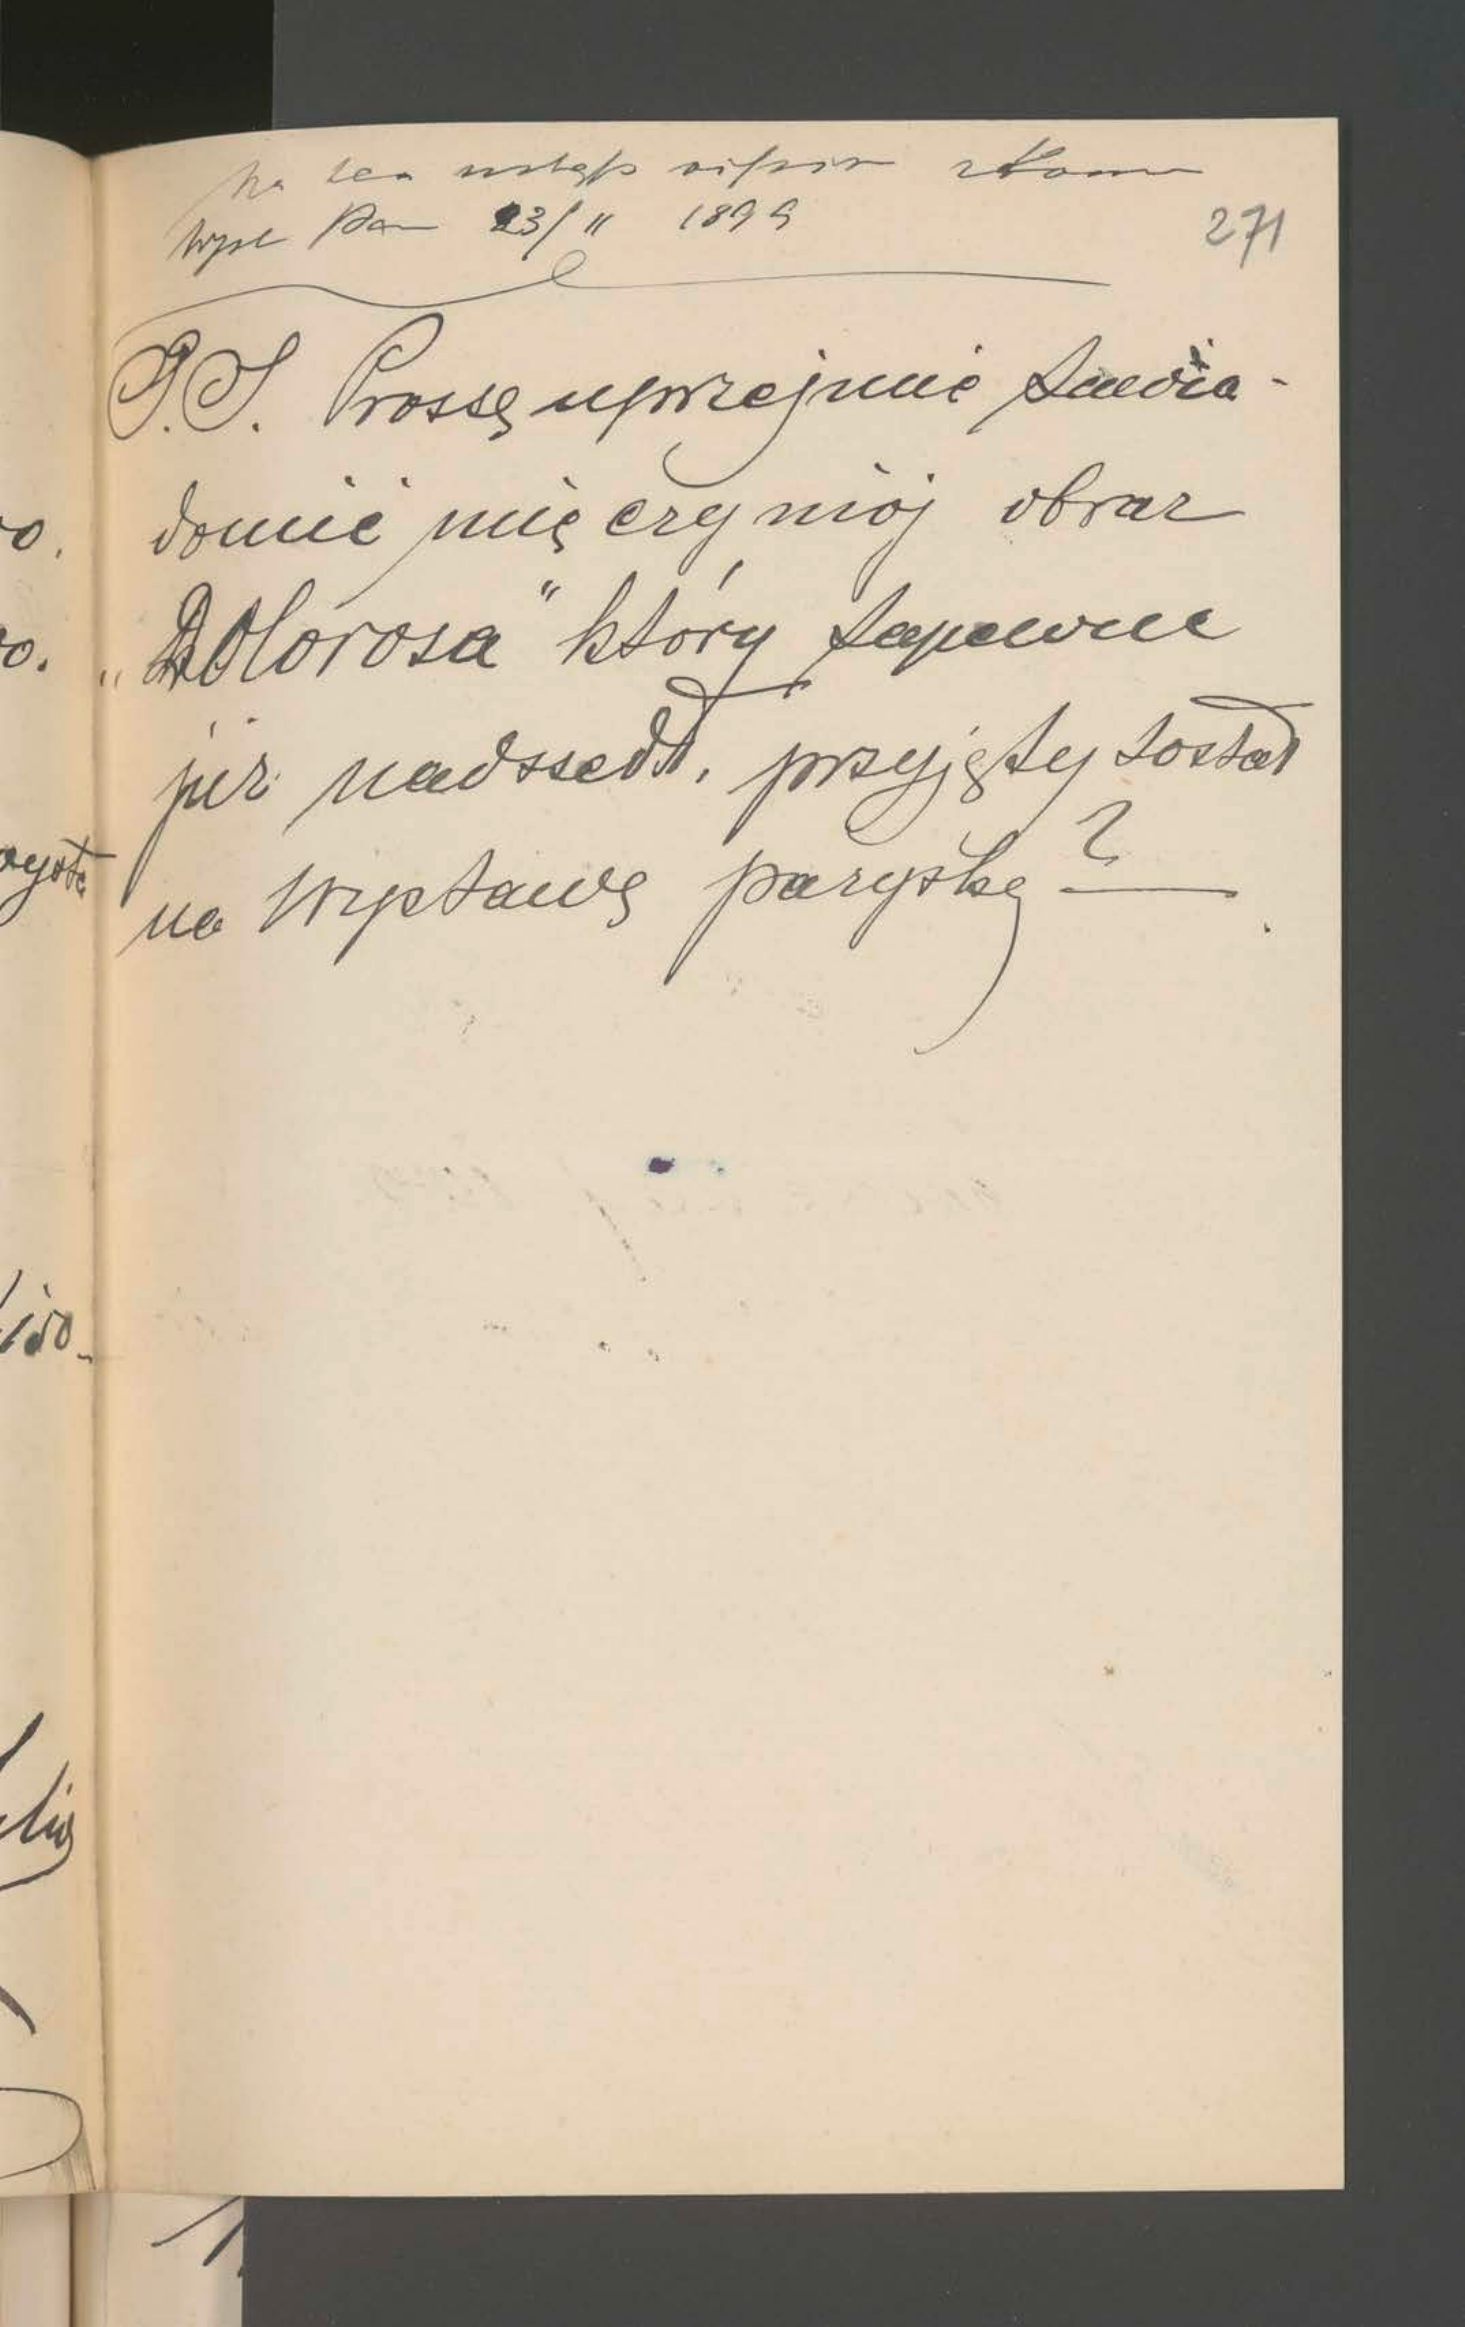 Na ten ustęp
Wyst Par 23/11 1899
271
P.S. Proszę uprzejmie zawia-
domić mię czy mój obraz
„Dolorosa" który zapewne
już nadszedł, przyjęty został
na Wystawę paryską?